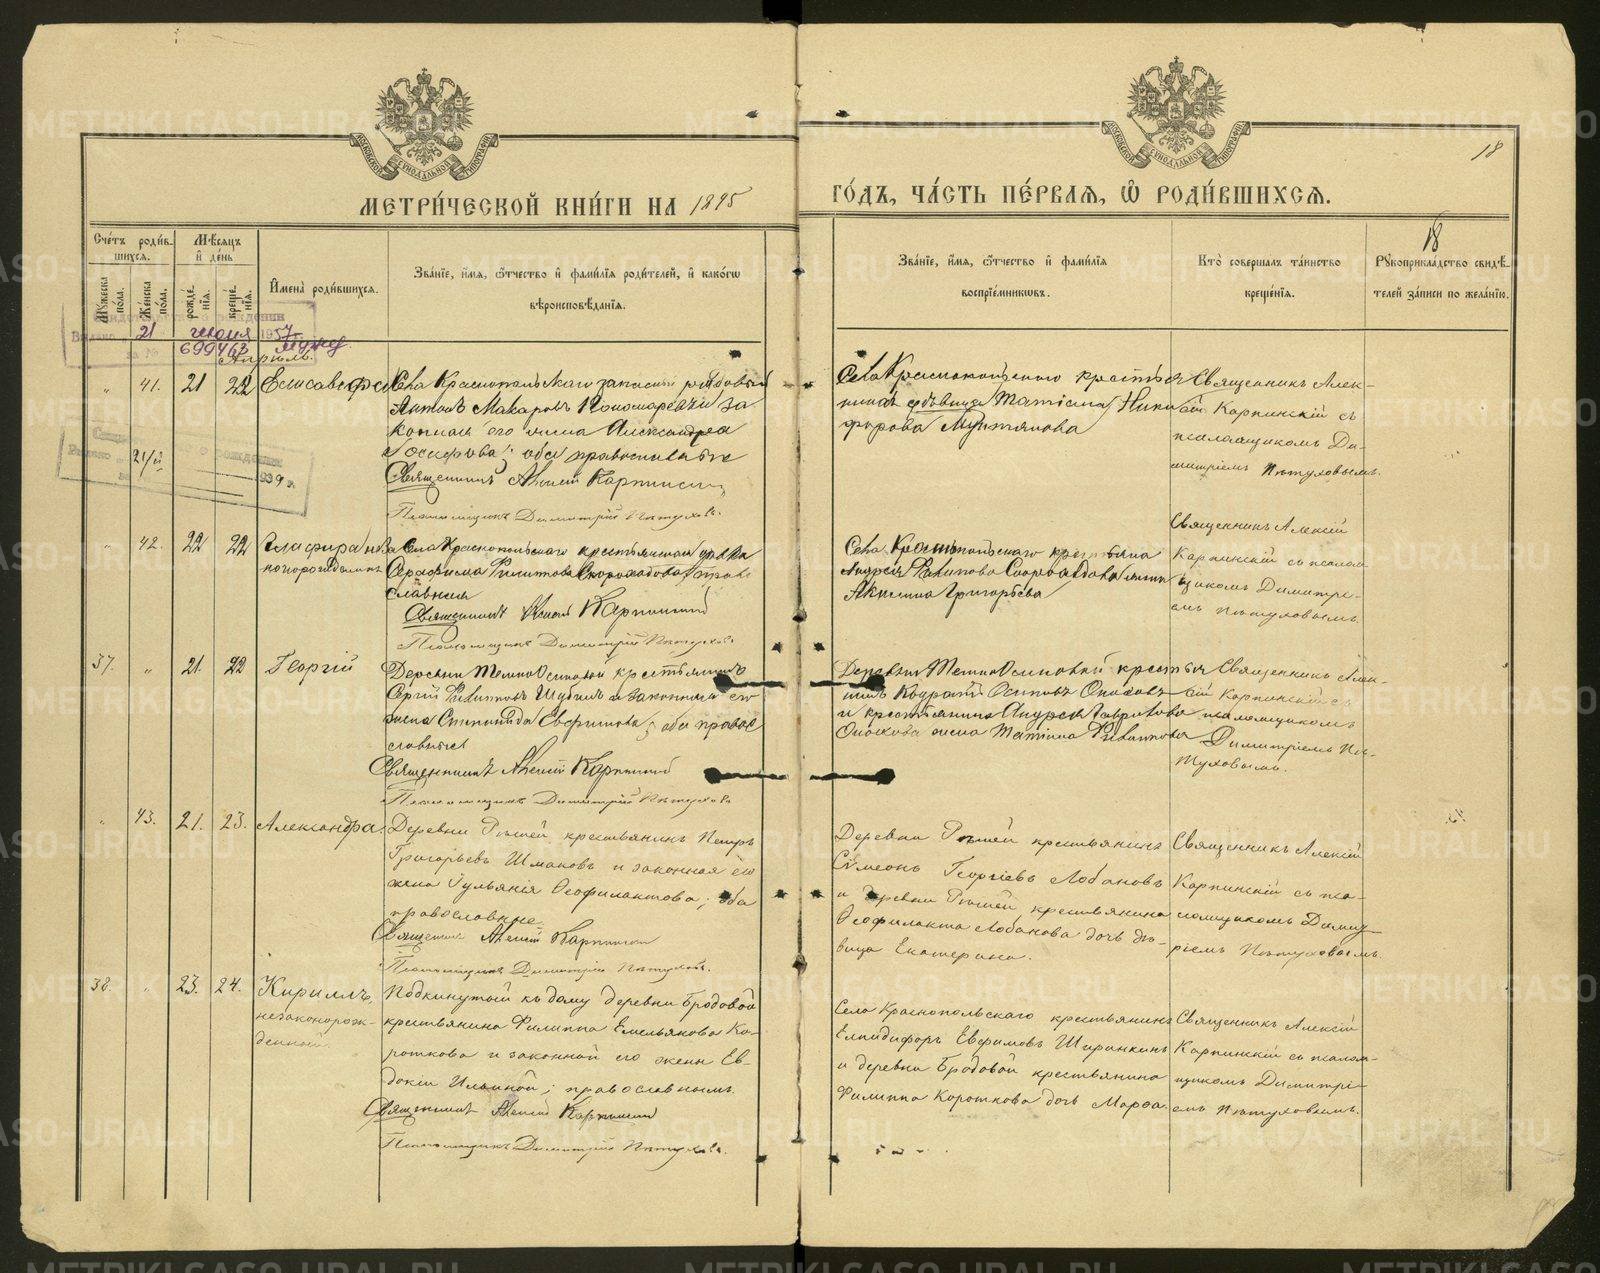 МЕТРИ́ЧЕСКОЙ КНИ́ГИ НА 1895
ГО́ДЪ, ЧА́СТЬ ПЕ́РВАЯ, Ѿ РОДИ́ВШИХСЯ.
18
18
МОСКОВСКОЙ СѴНОДАЛЬНОЙ ТИПОГРАФІИ
МОСКОВСКОЙ СѴНОДАЛЬНОЙ ТИПОГРАФІИ
Сче́тъ роди́в-
шихся.
Мѣсяцъ
и҆ де́нь
Мꙋжеска по́ла.
Же́нска по́ла.
рожде́нїѧ.
креще́нїѧ.
И҆мена̀ роди́вшихсѧ.
Зва́нїе, и҆́мѧ, ѻ҆́тчество и҆ фами́лїѧ роди́телей, и҆ како́гѡ
вѣроисповѣ́данїѧ.
Зва́нїе, и҆́мѧ, ѻ҆́тчество и҆ фами́лїѧ
воспрїе́мникѡвъ.
Кто̀ соверша́лъ та́инство
креще́нїѧ.
Рꙋкоприкла́дство свидѣ́-
телей за́писи по жела́нїю.
21 июня 1957
699463
Апрѣль.
41. 21 22 Елисавета
Села Краснопольскаго запасный рядовой
Антонъ Макаровъ Пономаревъ и за
конная его жена Александра
Іосифова; оба православные
Священникъ Алексій Карпинскій
Псаломщикъ Димитрій Пѣтуховъ.
Села Краснопольскаго крестья
нина дѣвица Татіана Ники
форова
Священникъ Алек-
сій Карпинскій съ
псаломщикомъ Ди-
митріемъ Пѣтуховымъ.
42. 22 22 Глафира
незаконорожденная
Села Краснопольскаго крестьянская дѣвка
Серафима Филиппова Скороходова, право
славная
Священникъ Алексій Карпинскій
Псаломщикъ Димитрій Пѣтуховъ.
Села Краснопольскаго крестьянина
Андрея Филипова Скороходова жена
Акилина Григорьева
Священникъ Алексій
Карпинскій съ псалом
щикомъ Димитрі-
емъ Пѣтуховымъ.
37. 21. 22 Георгій
Деревни Темно Осиновой крестьянинъ
Сергій Филипповъ и законная его
жена Евфимова; оба право
славные
Священникъ Алексій Карпинскій
Псаломщикъ Димитрій Пѣтуховъ
Деревни Темно Осиновой крестья
нинъ Кодратъ Осиповъ
и крестьянина Андрея Гаврилова
жена Татіана Филиппова
Священникъ Алек-
сій Карпинскій съ
псаломщикомъ
Димитріемъ Пѣ-
туховымъ.
43. 21. 23. Александра.
Деревни крестьянинъ Петръ
Григорьевъ Шмаковъ и законная его
жена Іульянія Ѳеофилактова; оба
православные
Священникъ Алексій Карпинскій
Псаломщикъ Димитрій Пѣтуховъ.
Деревни крестьянинъ
Сѵмеонъ Георгіевъ Лобановъ
и деревни крестьянина
Ѳеофилакта Лобанова дочь дѣ-
вица Екатерина.
Священникъ Алексій
Карпинскій съ пса-
ломщикомъ Димит
ріемъ Пѣтуховымъ.
38. 23. 24. Кириллъ,
незаконорож-
денный
Подкинутый къ дому деревни Бродовой
крестьянина Филиппа Емельянова Ко-
роткова и законной его жены Ев-
докіи Ильиной; православнымъ.
Священникъ Алексій Карпинскій
Псаломщикъ Димитрій Пѣтуховъ.
Села Краснопольскаго крестьянинъ
Елпидифоръ Евфимовъ Ширинкинъ
и деревни Бродовой крестьянина
Филиппа Короткова дочь Марѳа.
Священникъ Алексій
Карпинскій съ псалом-
щикомъ Димитрі-
емъ Пѣтуховымъ.
METRIKI.GASO-URAL.RU